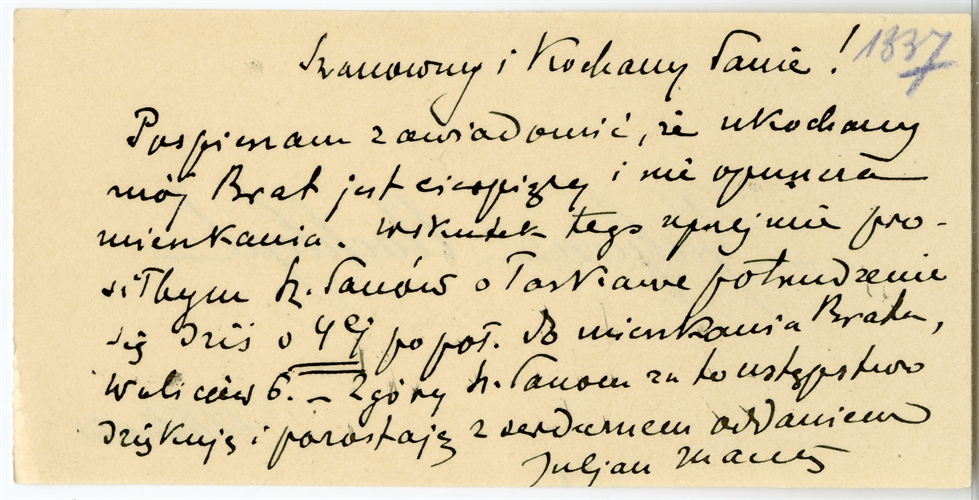 Szanowny i Kochany Panie! 1337
Pospieszam zawiadomić, że ukochany
mój Brat jest cierpiący i nie opuszcza
mieszkania. Wskutek tego uprzejmie pro-
siłbym Sz. Panów o łaskawe potrudzenie
się dziś o 4ej popoł. do mieszkania Brata,
Waliców 6. – Z góry Sz. Panom za to ustępstwo
dziękuję i pozostaję z serdecznem oddaniem
Juljan